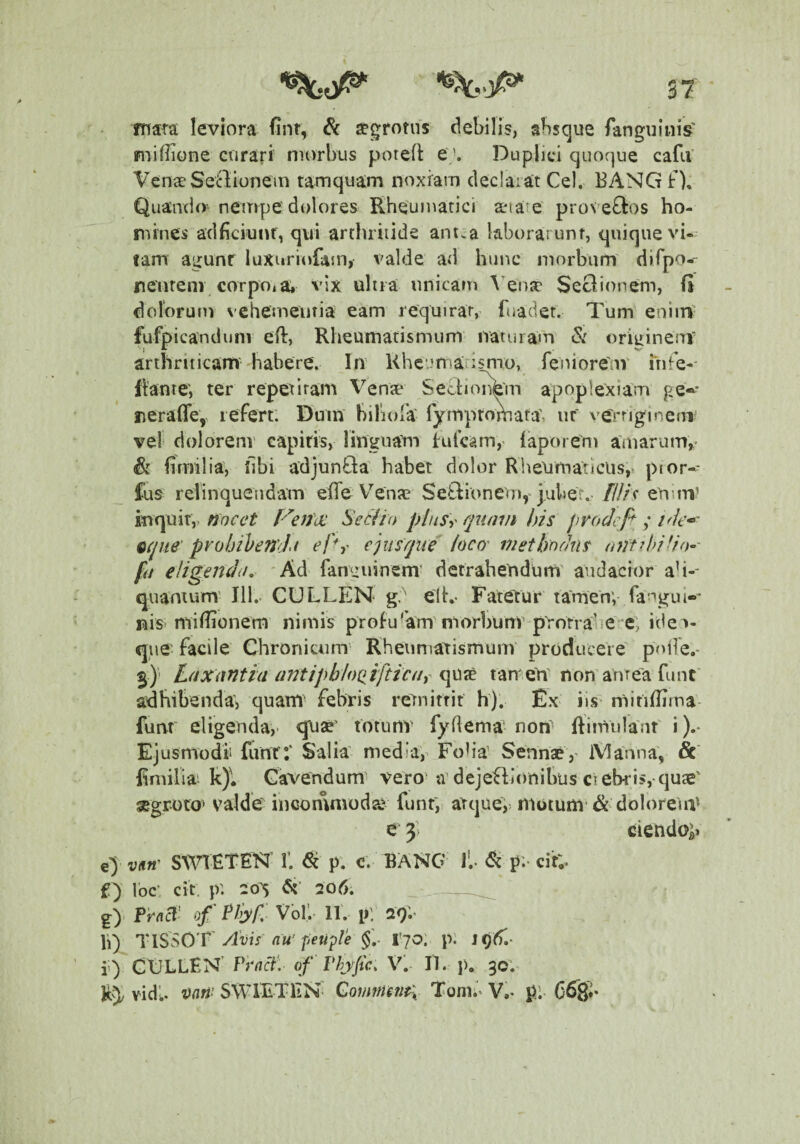 37
mata leviora ſint, & ægrotus debilis, absque ſanguinis
miſſione curari morbus poteſt e). Duplici quoque caſu
Venæ Sectionem tamquam noxiam declarat Cel. BANG f).
Quando nempe dolores Rheumatici ætate provectos ho-
mines adficiunt, qui arthritide antea laborarunt, quique vi-
tam agunt luxurioſam, valde ad hunc morbum diſpo-
nentem corpora, vix ultra unicam Venæ Sectionem, ſi
dolorum vehementia eam requirat, ſuadet. Tum enim
ſuſpicandum eſt, Rheumatismum naturam & originem
arthriticam habere. In Rheumatismo, ſeniorem infe-
ſtante, ter repetitam Venæ Sectionem apoplexiam ge-
neraſſe, refert. Dum bilioſa ſymptomata, ut vertiginem
vel dolorem capitis, linguam fuſcam, ſaporem amarum,
& ſimilia, ſibi adjuncta habet dolor Rheumaticus, pror-
ſus relinquendam eſſe Venæ Sectionem, jubet. Illis enim
inquit, nocet Venæ Sectio plus, quam his prodeſt; ide-
oque prohibenda eſt, ejusque loco methodus antibilio-
ſa eligenda. Ad ſanguinem detrahendum audacior ali-
quantum Ill. CULLEN g) eſt. Fatetur tamen, ſangui-
nis miſſionem nimis profuſam morbum protrahere, ideo-
que facile Chronicum Rheumatismum producere poſſe.
3) Laxantia antiphlogiſtica, quæ tamen non antea ſunt
adhibenda, quam febris remittit h). Ex iis mitiſſima
ſunt eligenda, quæ totum ſyſtema non ſtimulant i).
Ejusmodi ſunt: Salia media, Folia Sennæ, Manna, &
ſimilia k). Cavendum vero a dejectionibus crebris, quæ
ægroto valde incommodæ ſunt, atque, motum & dolorem
e 3 ciendo,
e) van SWIETEN l. & p. c. BANG l. & p. cit.
f) loc cit. p. 205 & 206.
g) Pract of Phyſ. Vol. II. p. 29.
h) TISSOT Avis au peuple §. 170. p. 196.
i) CULLEN Pract. of Phyſic. V. II. p. 30.
k) vid. van SWIETEN Comment. Tom. V. p. 668.